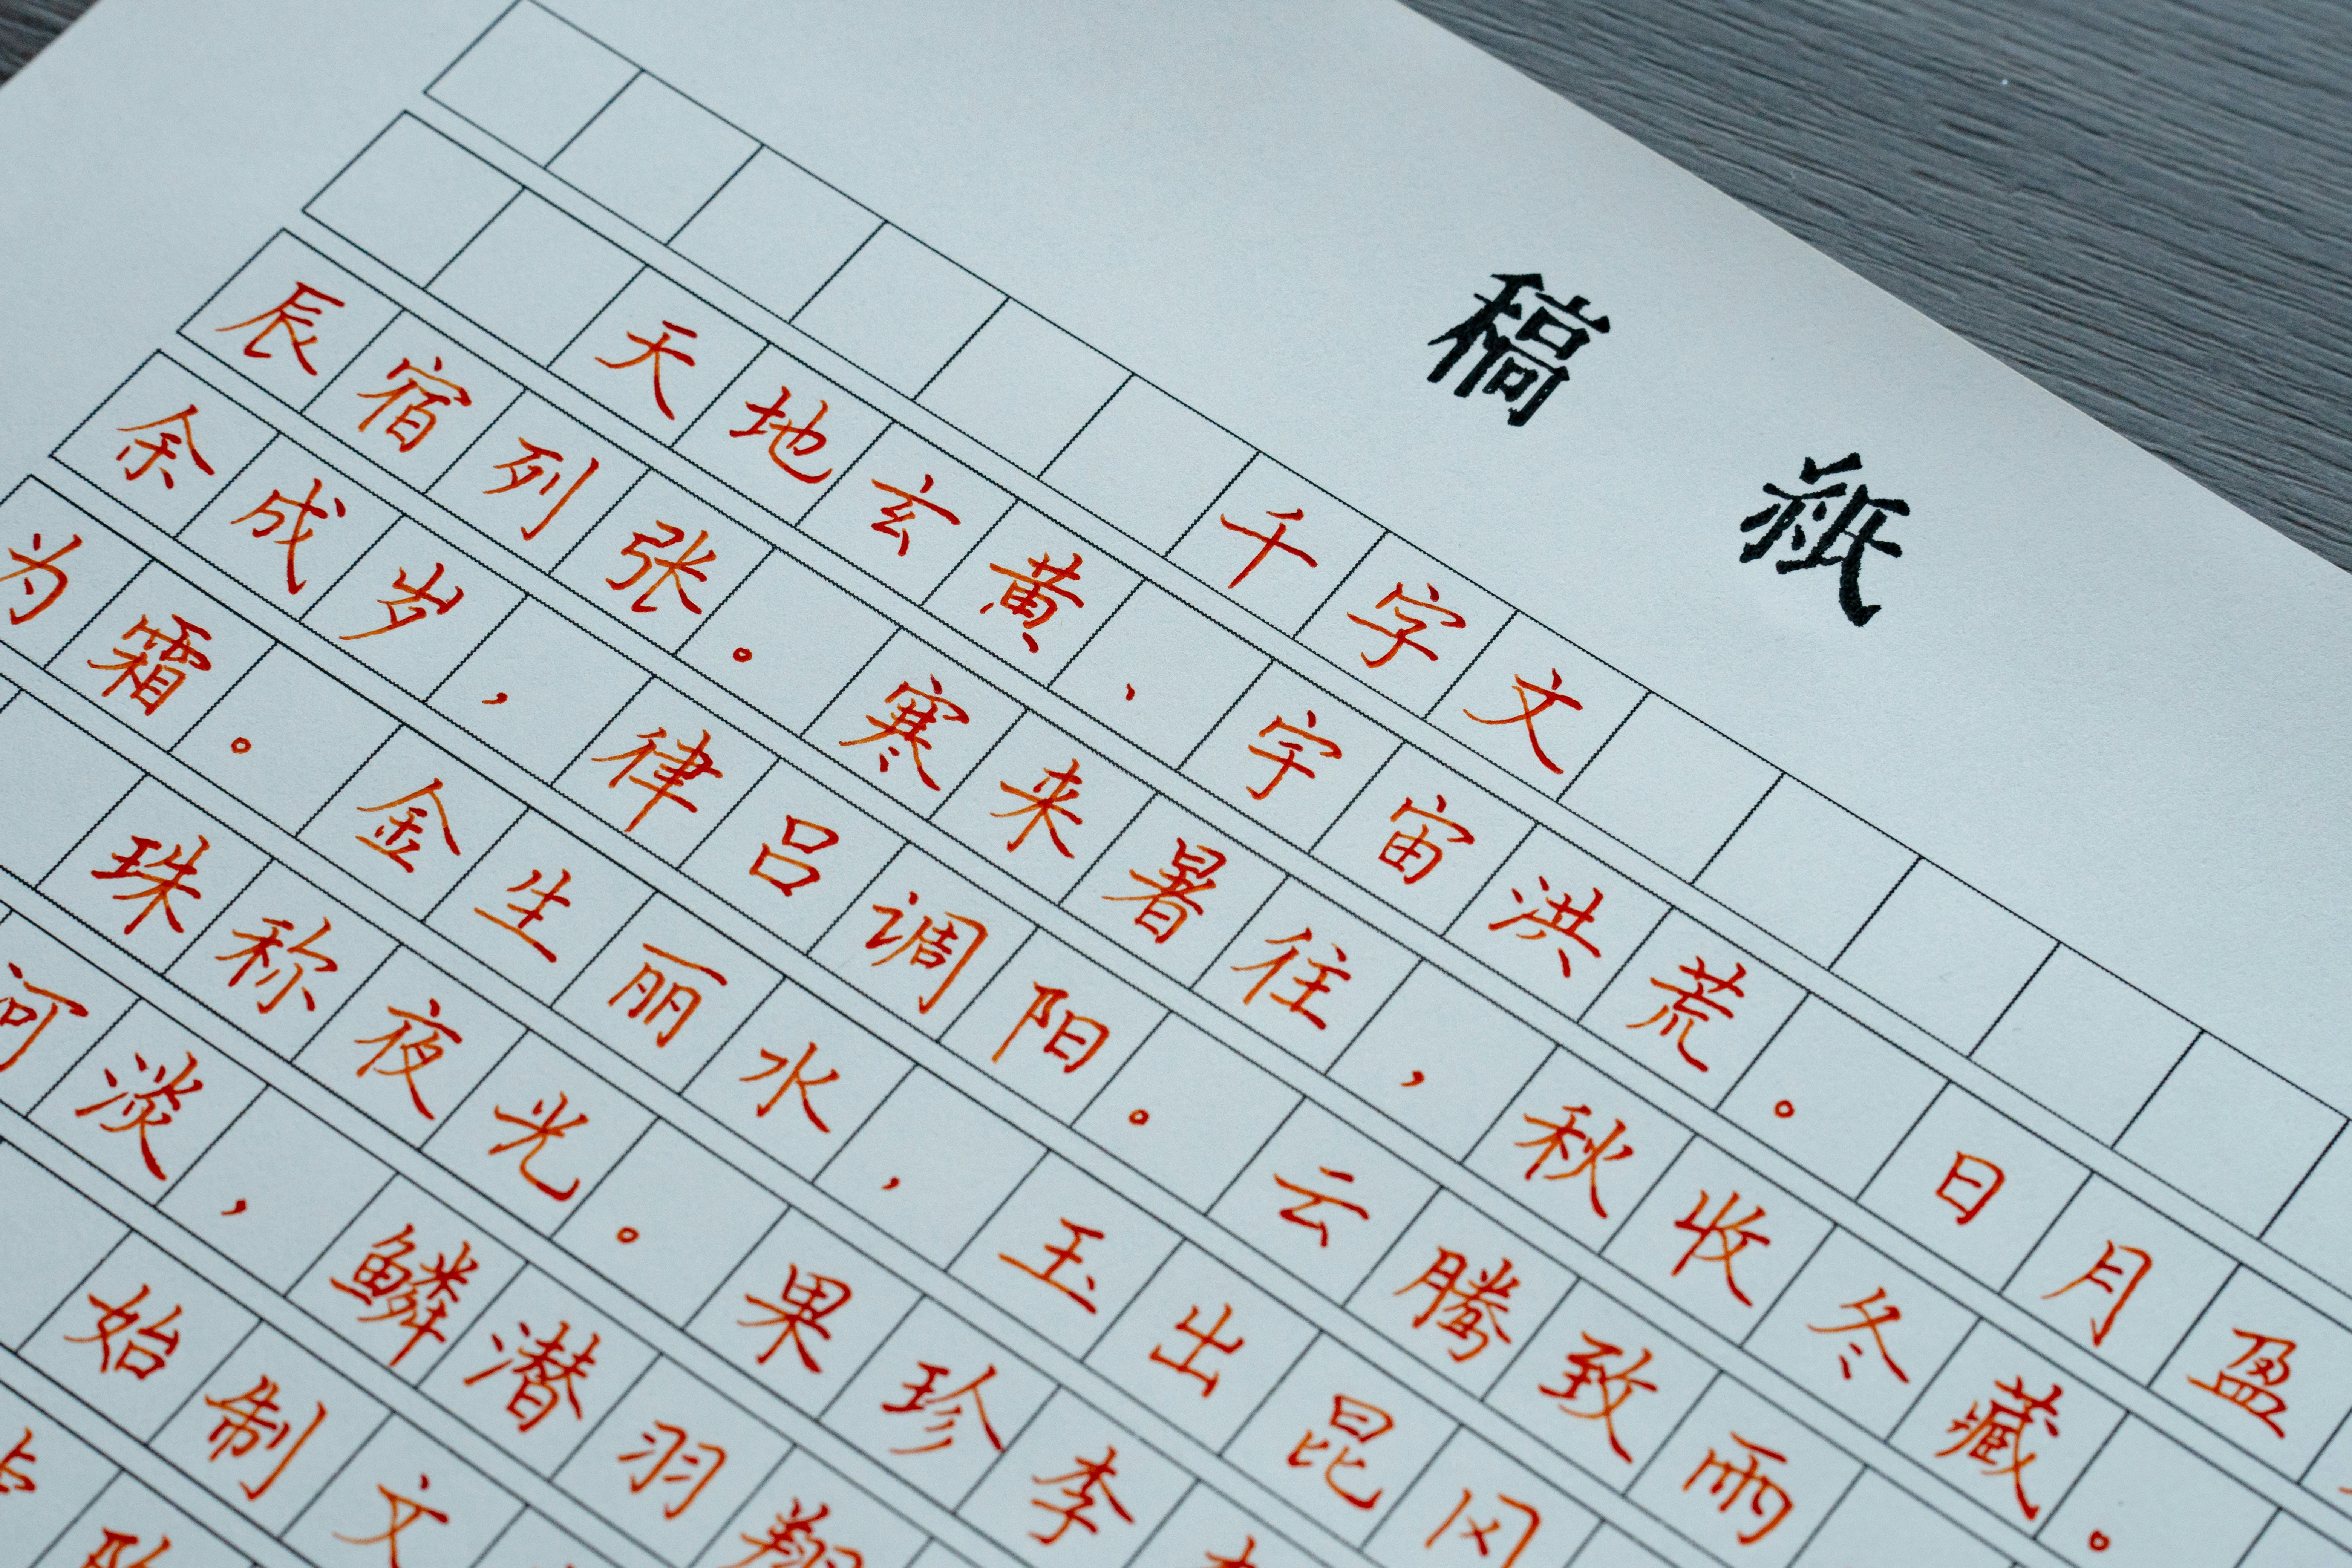 稿紙
千字文
天地玄黄、宇宙洪荒。日月盈
辰宿列张。寒来暑往，秋收冬藏。
余成岁，律吕调阳。云腾致雨
为霜。金生丽水，玉出昆冈
珠称夜光。果珍李
河淡，鳞潜羽翔
始制文